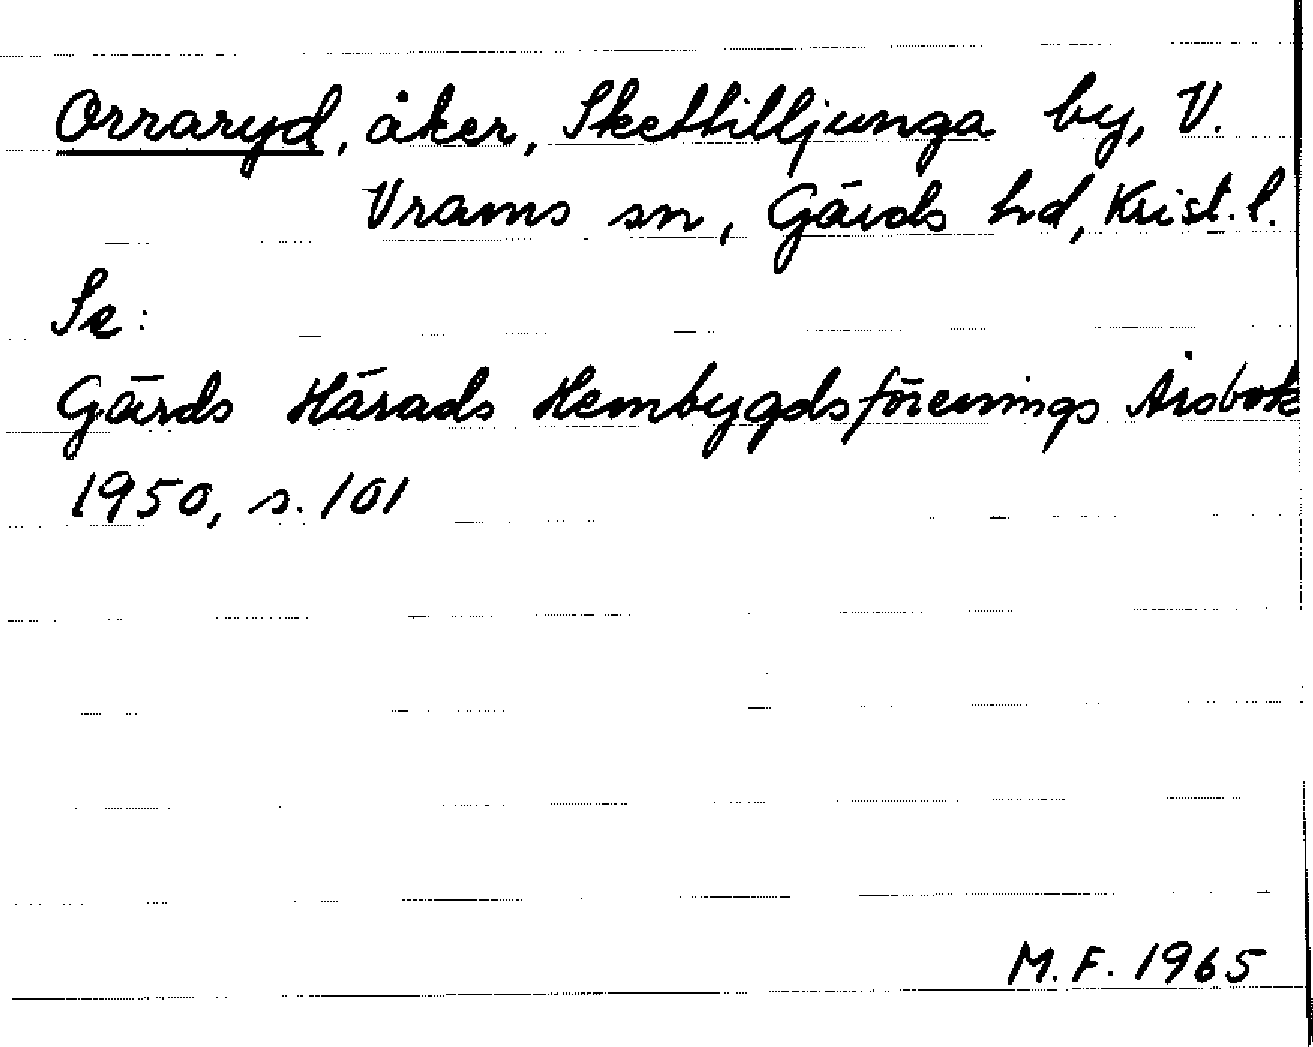 Orraryd, åker, Skettilljunga by, V.
Vrams sn, Gärds hd, Krist. l.
Se:
Gärds Härads Hembygdsförenings Årsbok
1950, s. 101
M. F. 1965